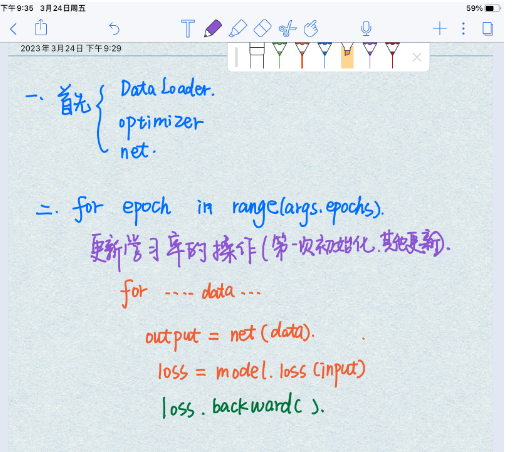 下午9:35 3月24日周五 59%
2023年3月24日 下午9:29
一. 首先 { DataLoader.
optimizer
net.
二. for epoch in range(args.epochs).
更新学习率的操作(第一次初始化.其他更新).
for .... data ...
output = net(data).
loss = model.loss(input)
loss.backward().